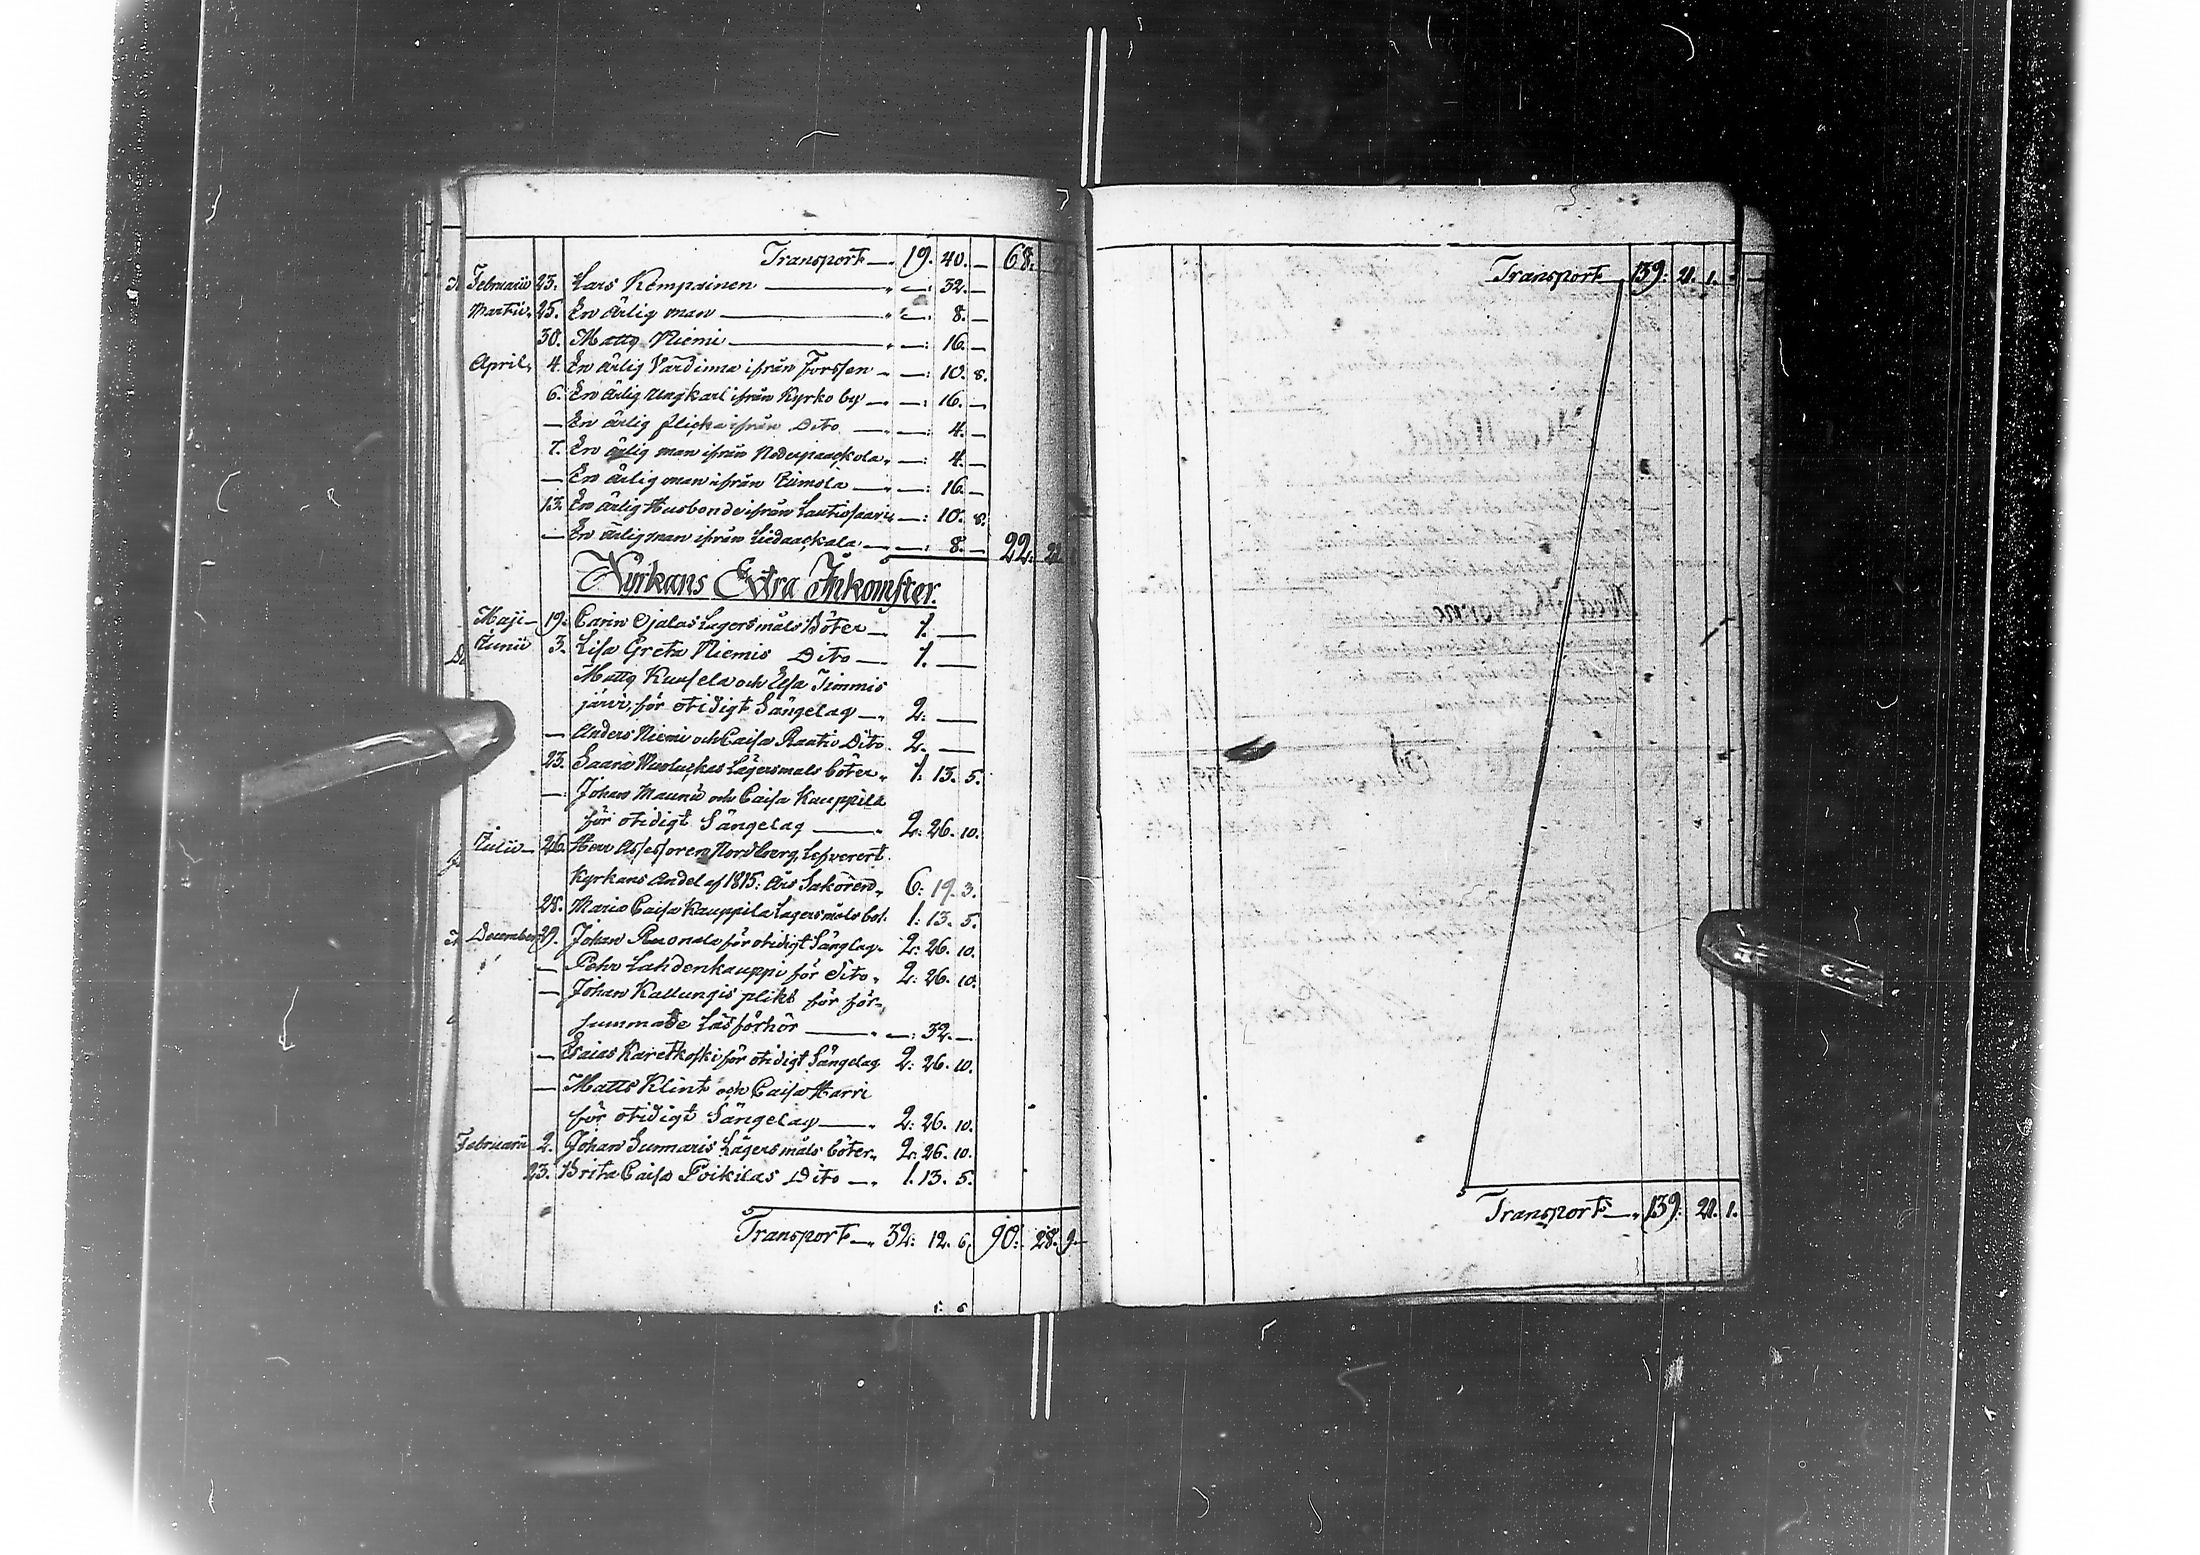 Transport —. 19. 40. — 68.
Februarii 23. Lars Kempainen — „ —: 32. —
Martii. 25. En ärlig man — „ —: 8. —
30. Matts Niemi — „ —: 16. —
April. 4. En ärlig Värdinna ifrån Forssen — —: 10. 8.
6. En ärlig ungkarl ifrån Kyrko by —. —: 16. —
— En ärlig flicka ifrån Dito — —: 4. —
7. En ärlig man ifrån —: 4. —
— En ärlig man ifrån —: 16. —
13. En ärlig Husbonde ifrån Lautiosaari —: 10. 8.
— En ärlig man ifrån —: 8. — 22.
Kyrkans Extra Inkomster.
Maji — 19. Carin Ojalas Lägersmåls Böter —. 1. —
Junii 3. Lisa Greta Niemis Dito —. 1. —
Matts och Lisa Jimmis
järvi, för otidigt Sängelag —. 2. —
— Anders Niemi och Caisa Raatio Dito. 2. —
23. Saara Lägersmåls böter. 1. 13. 5.
— Johan Maunu och Caisa Kauppila
för otidigt Sängelag —. 2: 26. 10.
Julii — 26. Herr Assessoren Nordberg, lefverert
Kyrkans Andel af 1815: Års Sakören. 6: 19. 3.
28. Maria Caisa Kauppila Lägersmåls böt. 1. 13. 5.
December 29. Johan Ruonala för otidigt Sänglag. 2: 26. 10.
— Pehr Lahdenkauppi för Dito. 2: 26. 10.
— Johan Kallungis plikt för för-
summade Läsförhör — . —: 32. —
— Esaias Karetkoski för otidigt Sängelag 2: 26. 10.
— Matts Klint och Caisa Harri
för otidigt Sängelag —. 2: 26. 10.
Februarii 2. Johan Lägersmåls böter. 2: 26. 10.
23. Brita Caisa Poikilas Dito —. 1. 13. 5.
Transport —. 32: 12. 6. 90: 28. 9.
Transport 139: 21. 1.
Transport —. 139: 21. 1.